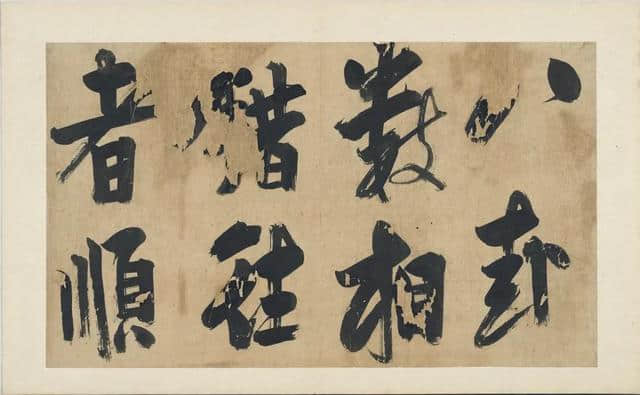 八卦
數相
錯往
者順